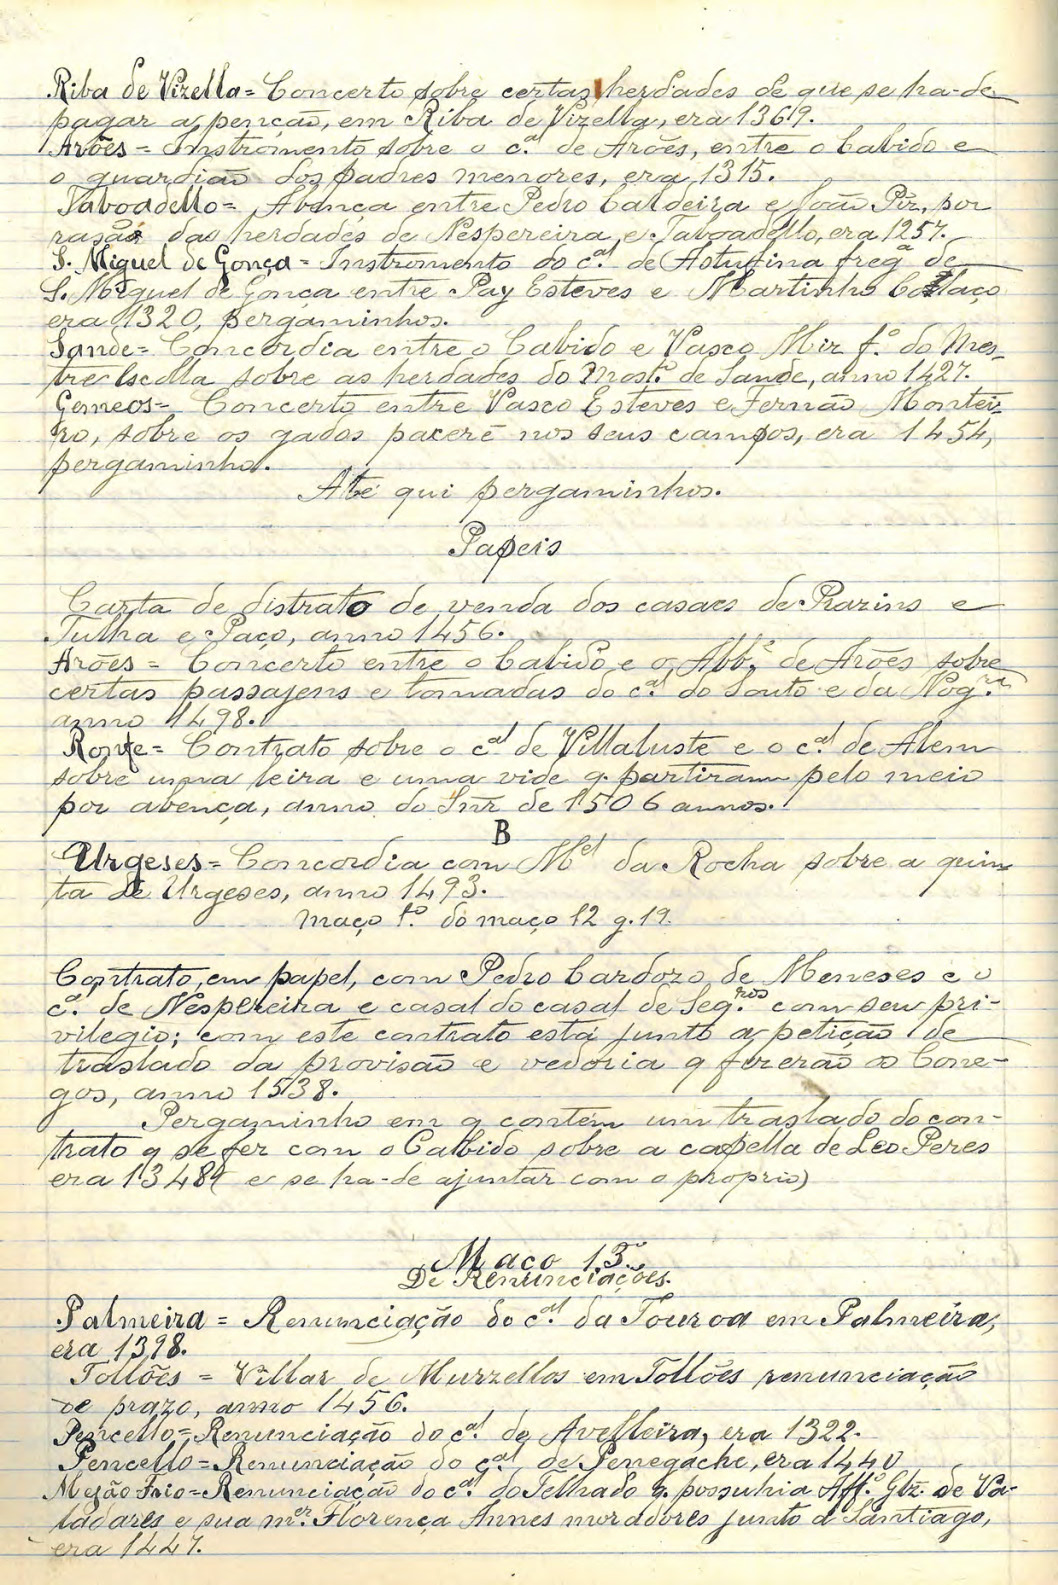 Riba de Vizella = Concerto sobre certas herdades de que se ha-de
pagar a penção, em Riba de Vizella, era 1369.
Arões = Instromento sobre o c.al de Arões, entre o Cabido e
o guardião dos padres menores, era 1315.
Taboadello = Abença entre Pedro Caldeira e João Piz, por
rasão das herdades de Nespereira e Taboadello, era 1257.
S. Miguel de Gonça = Instromento do c.al de Astufina freg.a de
S. Miguel de Gonca entre Pay Esteves e Martinho Collaço
era 1320, pergaminhos.
Sande = Concordia entre o Cabido e Vasco Miz f.o do Mes-
tre Escolla sobre as herdades do Most.o de Sande, anno 1427.
Gemeos = Concerto entre Vasco Esteves e Fernão Montei-
ro, sobre os gados pacerẽ nos seus campos, era 1454,
pergaminho.
Até qui pergaminhos.
Papeis
Carta de distrato de venda dos casaes de Prazins e
Tulha e Paço, anno 1456.
Arões = Concerto entre o Cabido e o Abb.e de Arões sobre
certas passajens e tomadas do c.al do Souto e da Nog.ra
anno 1498.
Ronfe = Contrato sobre o c.al de Villaluste e o c.al de Alem
sobre uma leira e uma vide q. partiram pelo meio
por abença, anno do Snr de 1506 annos.
B
Urgeses = Concordia com M.el da Rocha sobre a quin-
ta de Urgeses, anno 1493.
Maço 1.o do maço 12 g. 19.
Contrato, em papel, com Pedro Cardozo de Meneses e o
c.al de Nespereira e casal do casal de Seg.ros com seu pri-
vilegio; com este contrato está junto a petição de
traslado da provisão e vedoria q fizerão os Cone-
gos, anno 1538.
Pergaminho em q contém um traslado do con-
trato q se fez com o Cabbido sobre a capella de Leo Peres
era 1348 (e se ha-de ajuntar com o proprio)
Maço 13.o
De Renunciações.
Palmeira = Renunciação do c.al da Touroa em Palmeira,
era 1398.
Tollões = Villar de Murzellos em Tollões renunciação
de prazo, anno 1456.
Pencello = Renunciação do c.al de Avelleira, era 1322.
Pencello = Renunciação do c.al de Penegache, era 1440
Mejão Frio = Renunciação do c.al do Telhado q. possuhia Aff.o Glz. de Va-
ladares e sua m.er Florença Annes moradores junto a Santiago,
era 1447.